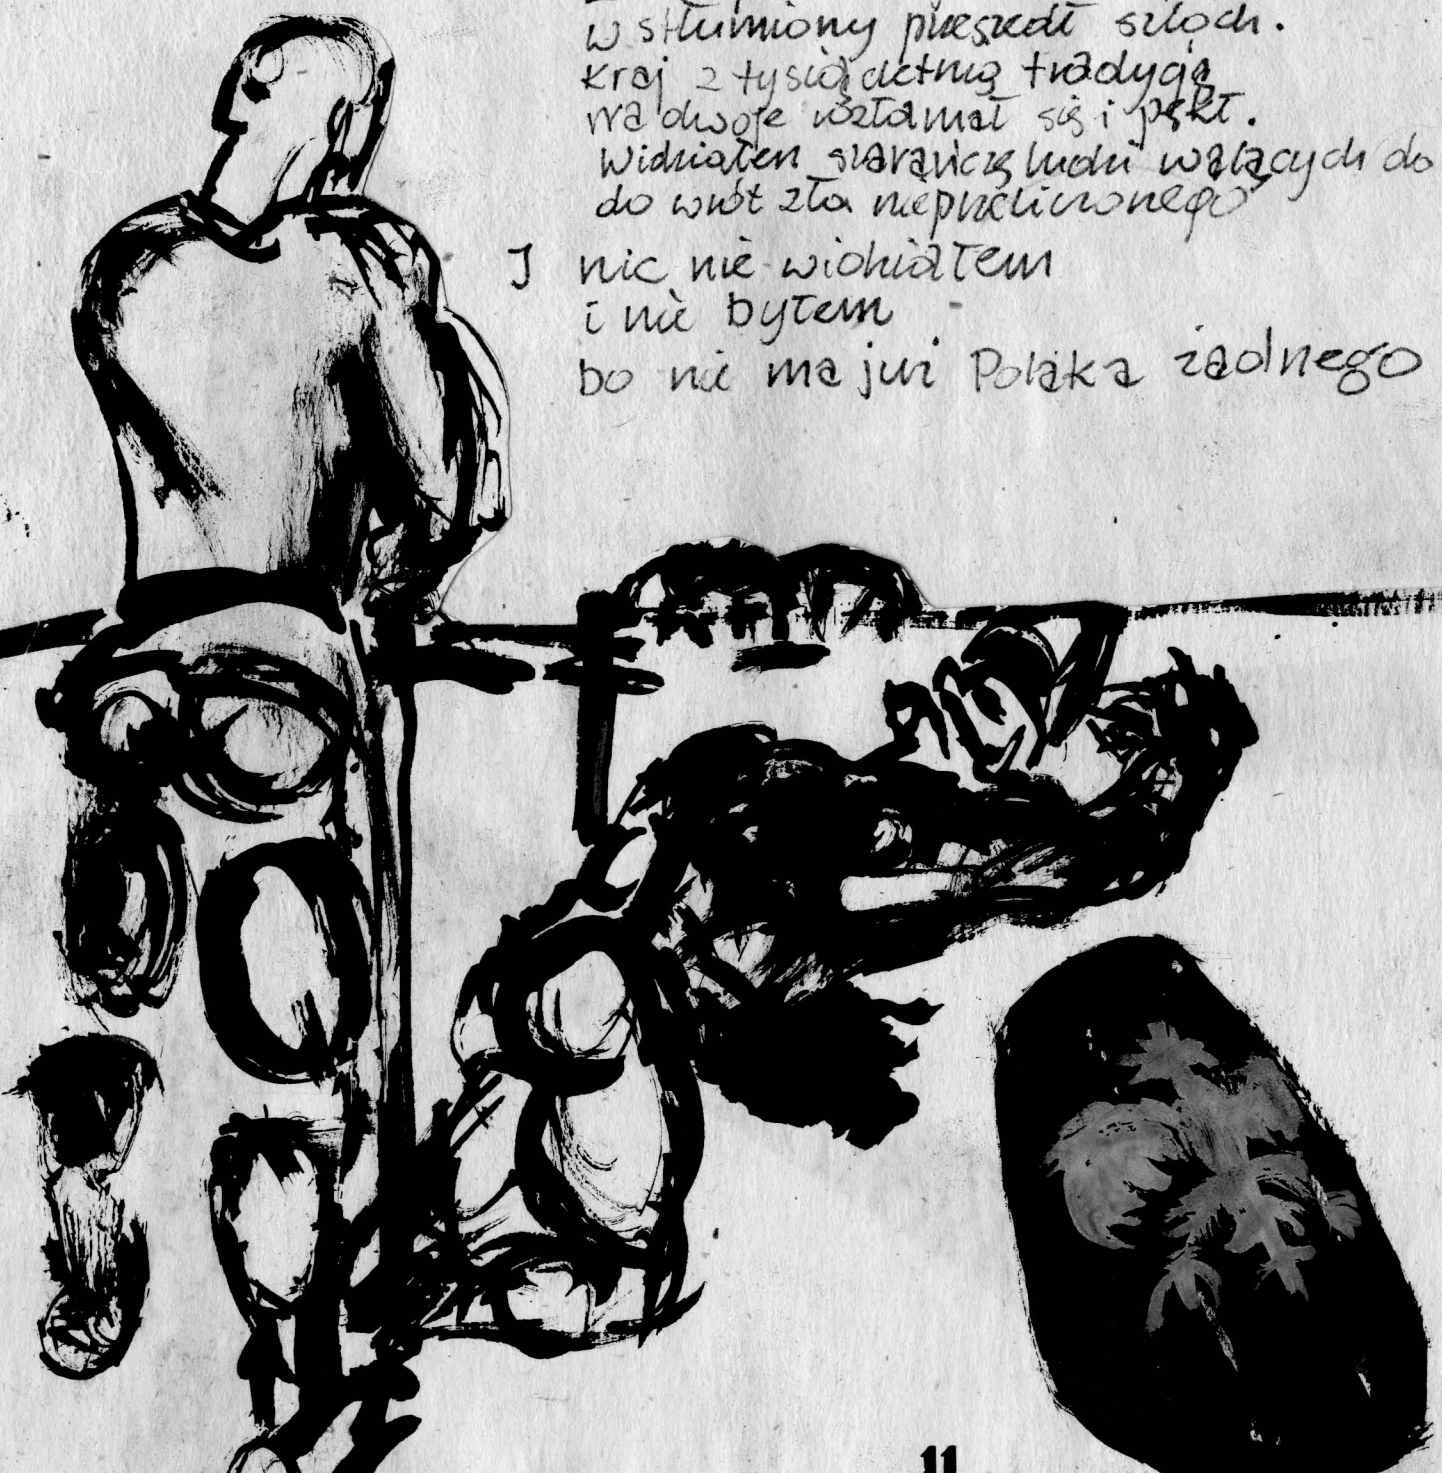 w stłumiony przeszedł szloch.
kraj z tysiącletnią tradycją
na dwoje rozłamał się i pękł.
Widziałem szarańczę ludzi walących do
do wrót zła nieprzeliczonego
I nic nie widziałem
i nie byłem
bo nie ma już Polaka żadnego
11